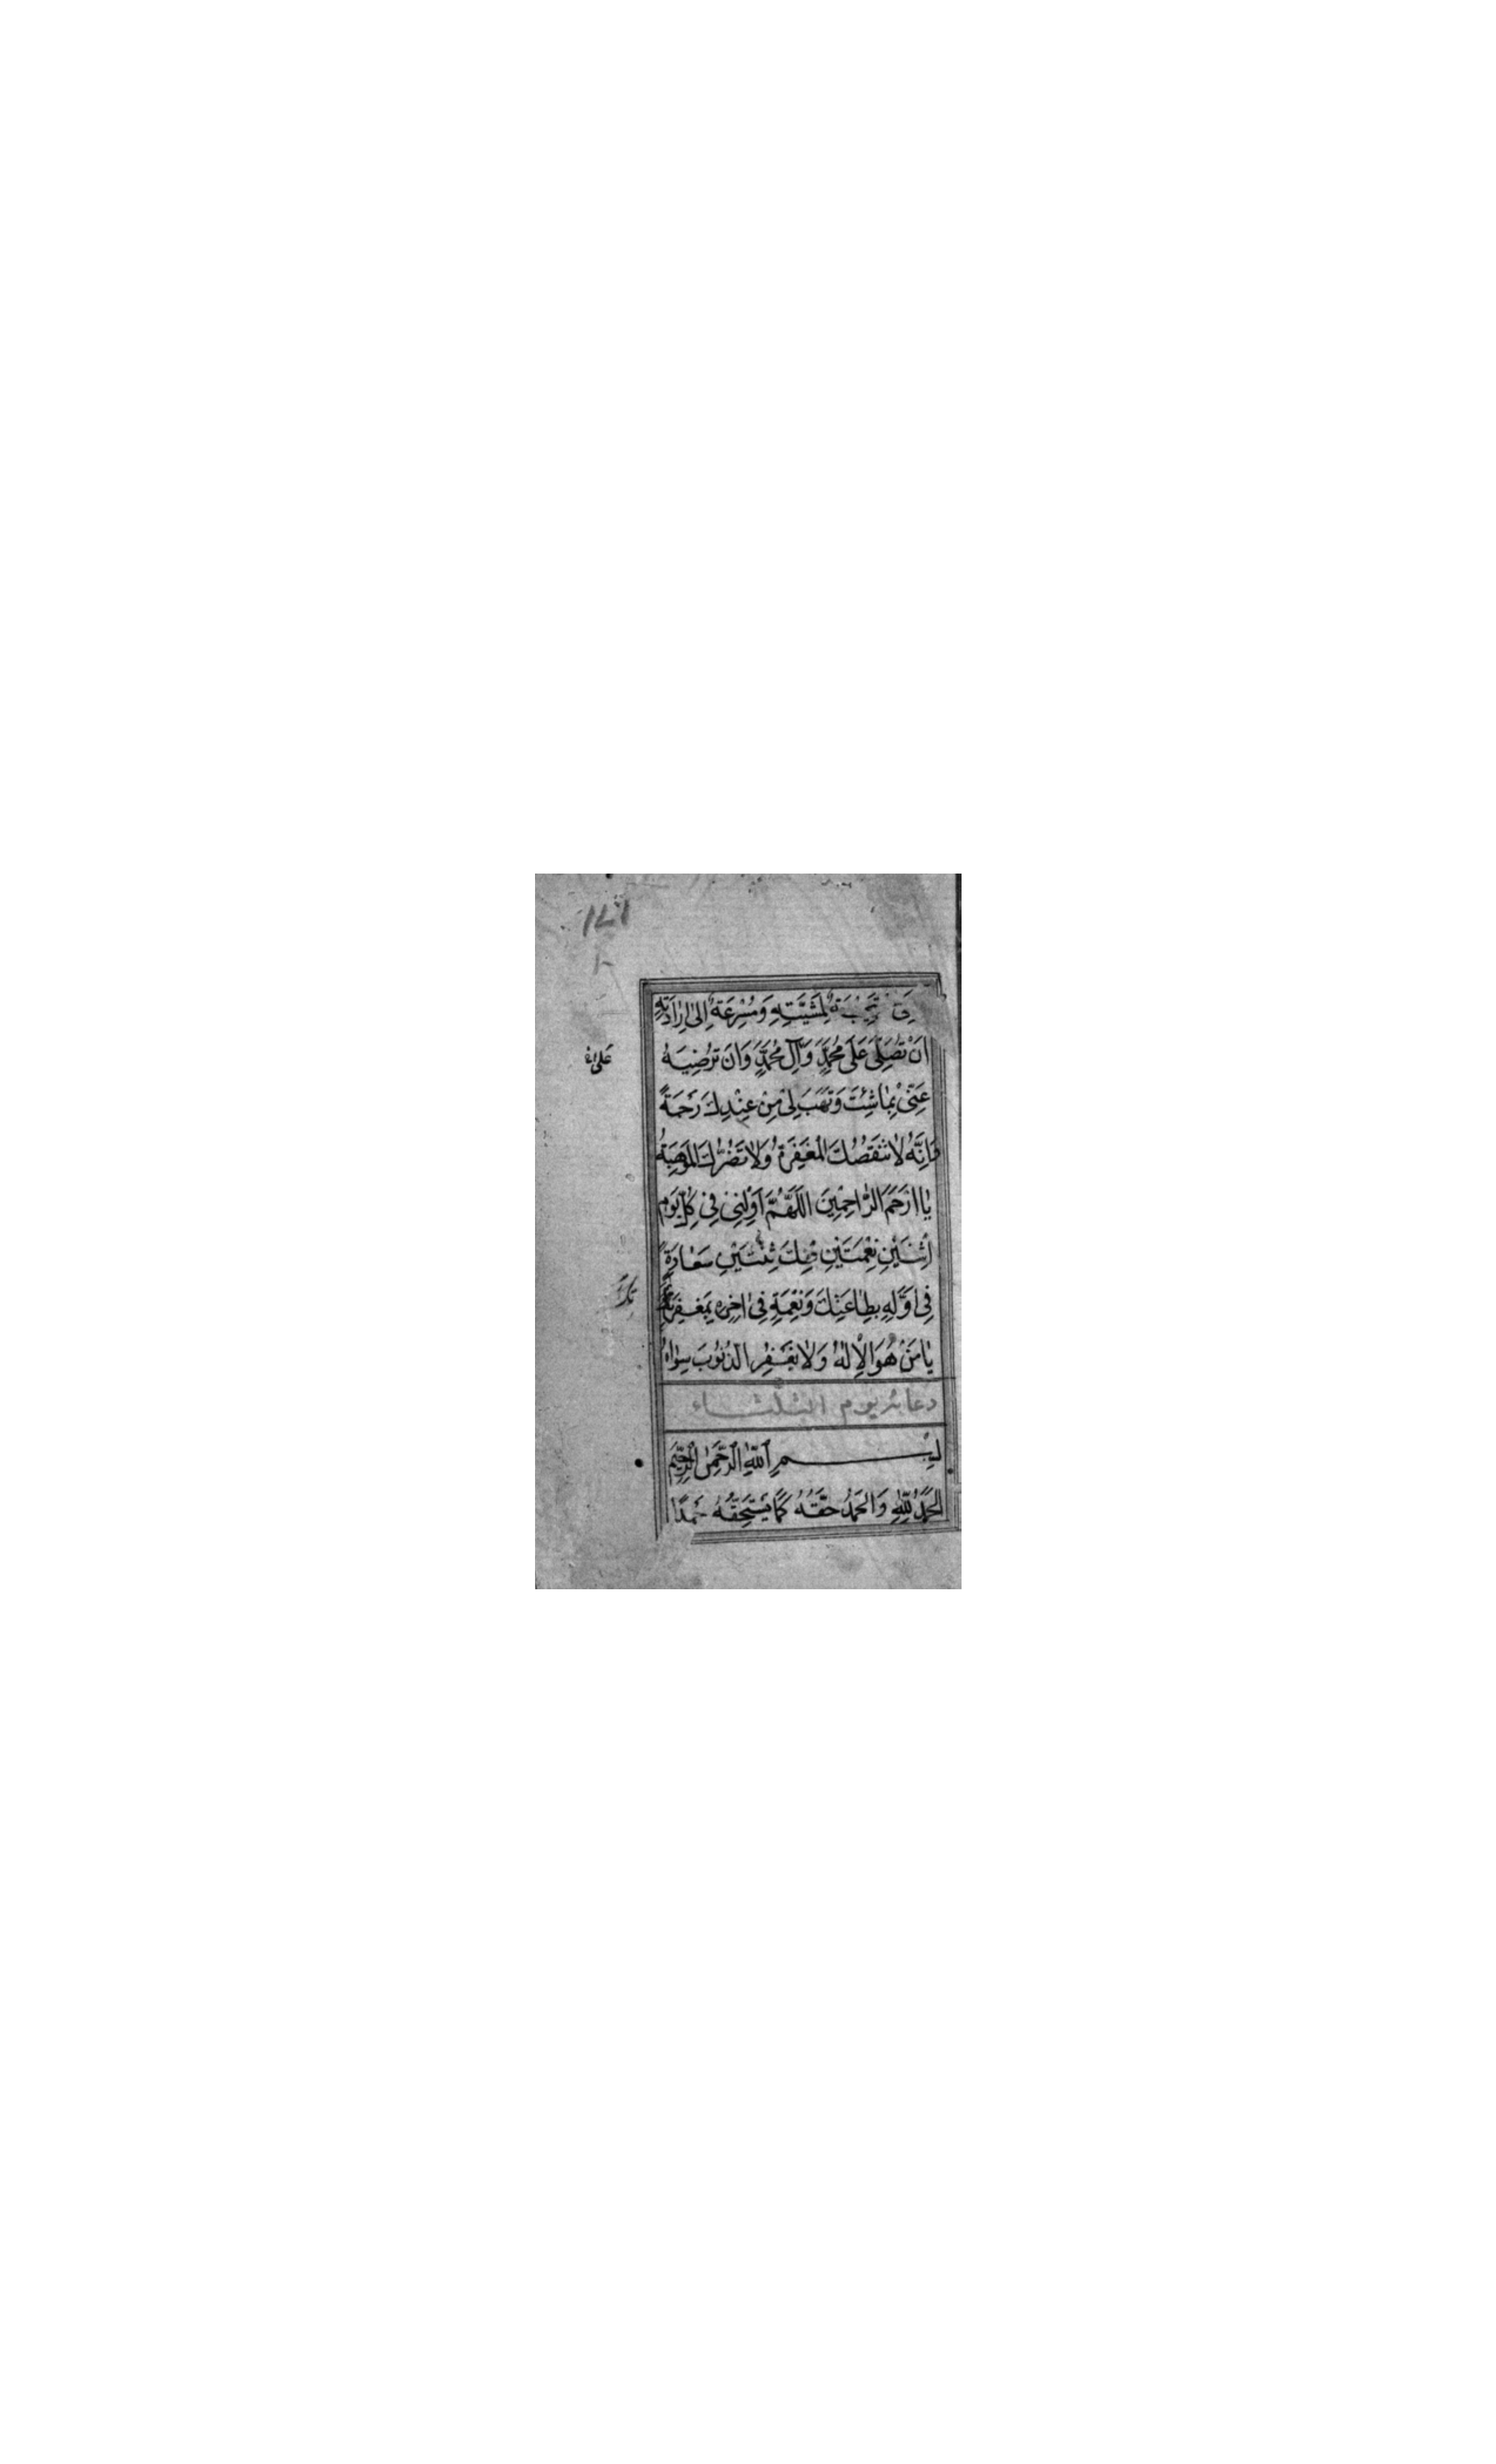 ١٧١
وَهِيَ مُسْتَجِيبَةٌ لِمَشِيَّتِهِ وَمُسْرِعَةٌ اِلىٰ اِرادَتِهِ
اَنْ تُصَلِّيَ عَلىٰ مُحَمَّدٍ وَآلِ مُحَمَّدٍ وَاَنْ تُرْضِيَهُ
عَنّي بِمٰا شِئْتَ وَتَهَبَ لي مِنْ عِنْدِكَ رَحْمَةً
فَاِنَّهُ لاٰ تَنْقُصُكَ الْمَغْفِرَةُ وَلاٰ تَضُرُّكَ الْمَوْهِبَةُ
يٰا اَرْحَمَ الرّٰاحِمينَ اَللّٰهُمَّ اَوْلِني في كُلِّ يَوْمِ
اثْنَيْنِ نِعْمَتَيْنِ مِنْكَ ثِنْتَيْنِ سَعٰادَةً
في اَوَّلِهِ بِطٰاعَتِكَ وَنِعْمَةً في اٰخِرِهِ بِمَغْفِرَتِكَ
يٰا مَنْ هُوَ الْاِلٰهُ وَلاٰ يَغْفِرُ الذُّنُوبَ سِوٰاهُ
دعاء يوم الثلثاء
بِسْمِ اللّٰهِ الرَّحْمٰنِ الرَّحيمِ
اَلْحَمْدُ لِلّٰهِ وَالْحَمْدُ حَقُّهُ كَمٰا يَسْتَحِقُّهُ حَمْدًا